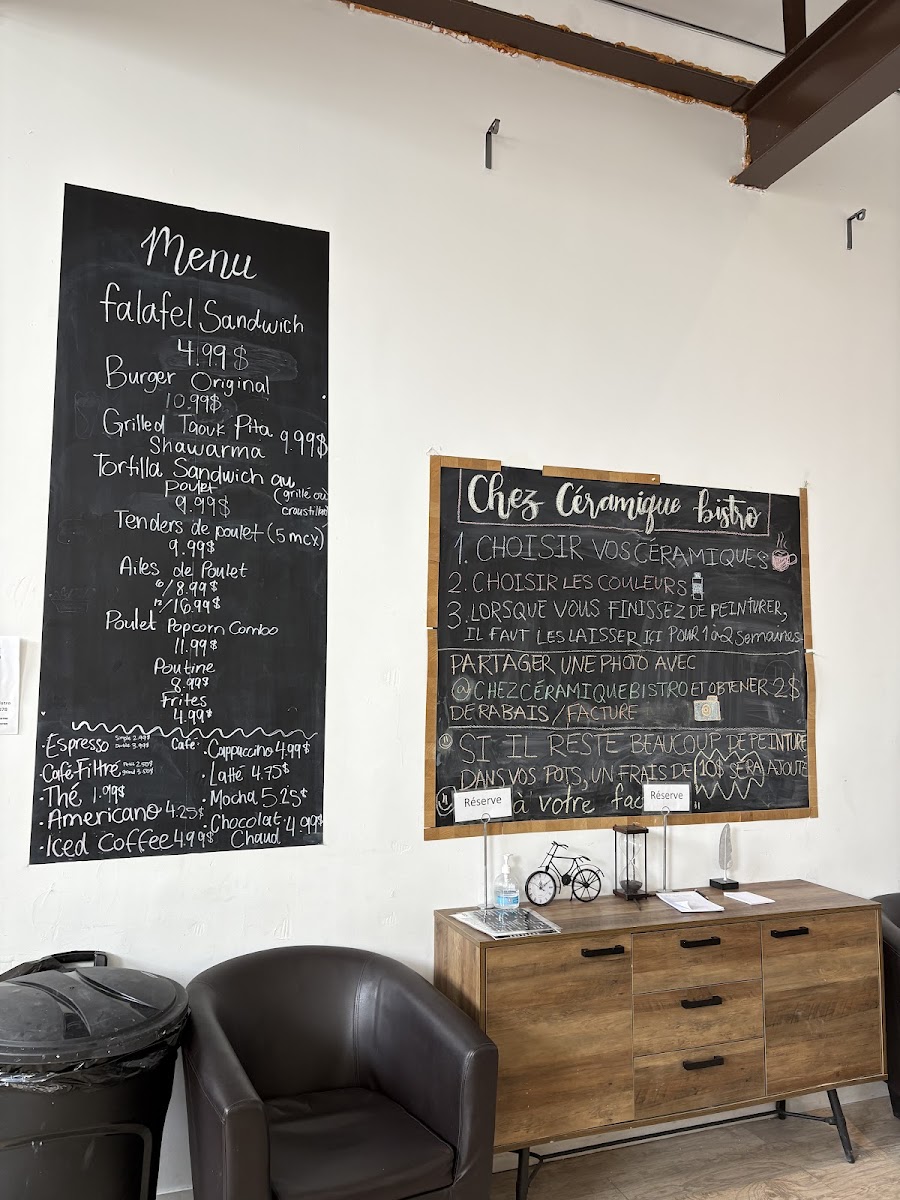 Menu
falafel Sandwich
4.99$
Burger Original
10.99$
Grilled Taouk Pita
Shawarma 9.99$
Tortilla Sandwich au
Poulet (grillé ou
9.99$ croustillant)
Tenders de poulet (5 mcx)
9.99$
Ailes de Poulet
6/8.99$
12/16.99$
Poulet Popcorn Combo
11.99$
Poutine
8.99$
Frites
4.99$
•Espresso Simple 2.99$
Double 3.99$
•Café Filtré Petit 2.50$
grand 3.50$
•Thé 1.99$
•Americano 4.25$
•Iced Coffee 4.99$
Café
•Cappuccino 4.99$
•Latte 4.75$
•Mocha 5.25$
•Chocolat
Chaud 4.99$
Chez Céramique bistro
1. CHOISIR VOS CÉRAMIQUES
2. CHOISIR LES COULEURS
3. LORSQUE VOUS FINISSEZ DE PEINTURER,
IL FAUT LES LAISSER ICI POUR 1 à 2 semaines
PARTAGER UNE PHOTO AVEC
@CHEZCÉRAMIQUEBISTRO ET OBTENER 2$
DE RABAIS / FACTURE
SI IL RESTE BEAUCOUP DE PEINTURE
DANS VOS POTS, UN FRAIS DE 10$ SERA AJOUTÉ
à votre fac
Réserve
Réserve